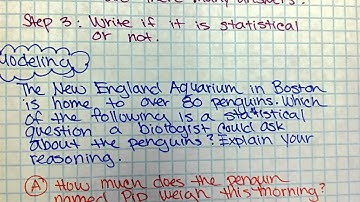 Step 3: Write if it is statistical
or not.
Modeling
The New England Aquarium in Boston
is home to over 80 penguins. Which
of the following is a statistical
question a biologist could ask
about the penguins? Explain your
reasoning.
A How much does the penguin
named Pip weigh this morning?